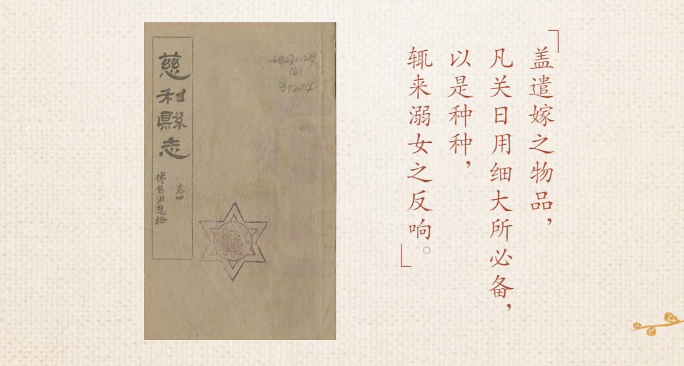 「盖遣嫁之物品，
凡关日用细大所必备，
以是种种，
辄来溺女之反响。」
慈利縣志
卷四